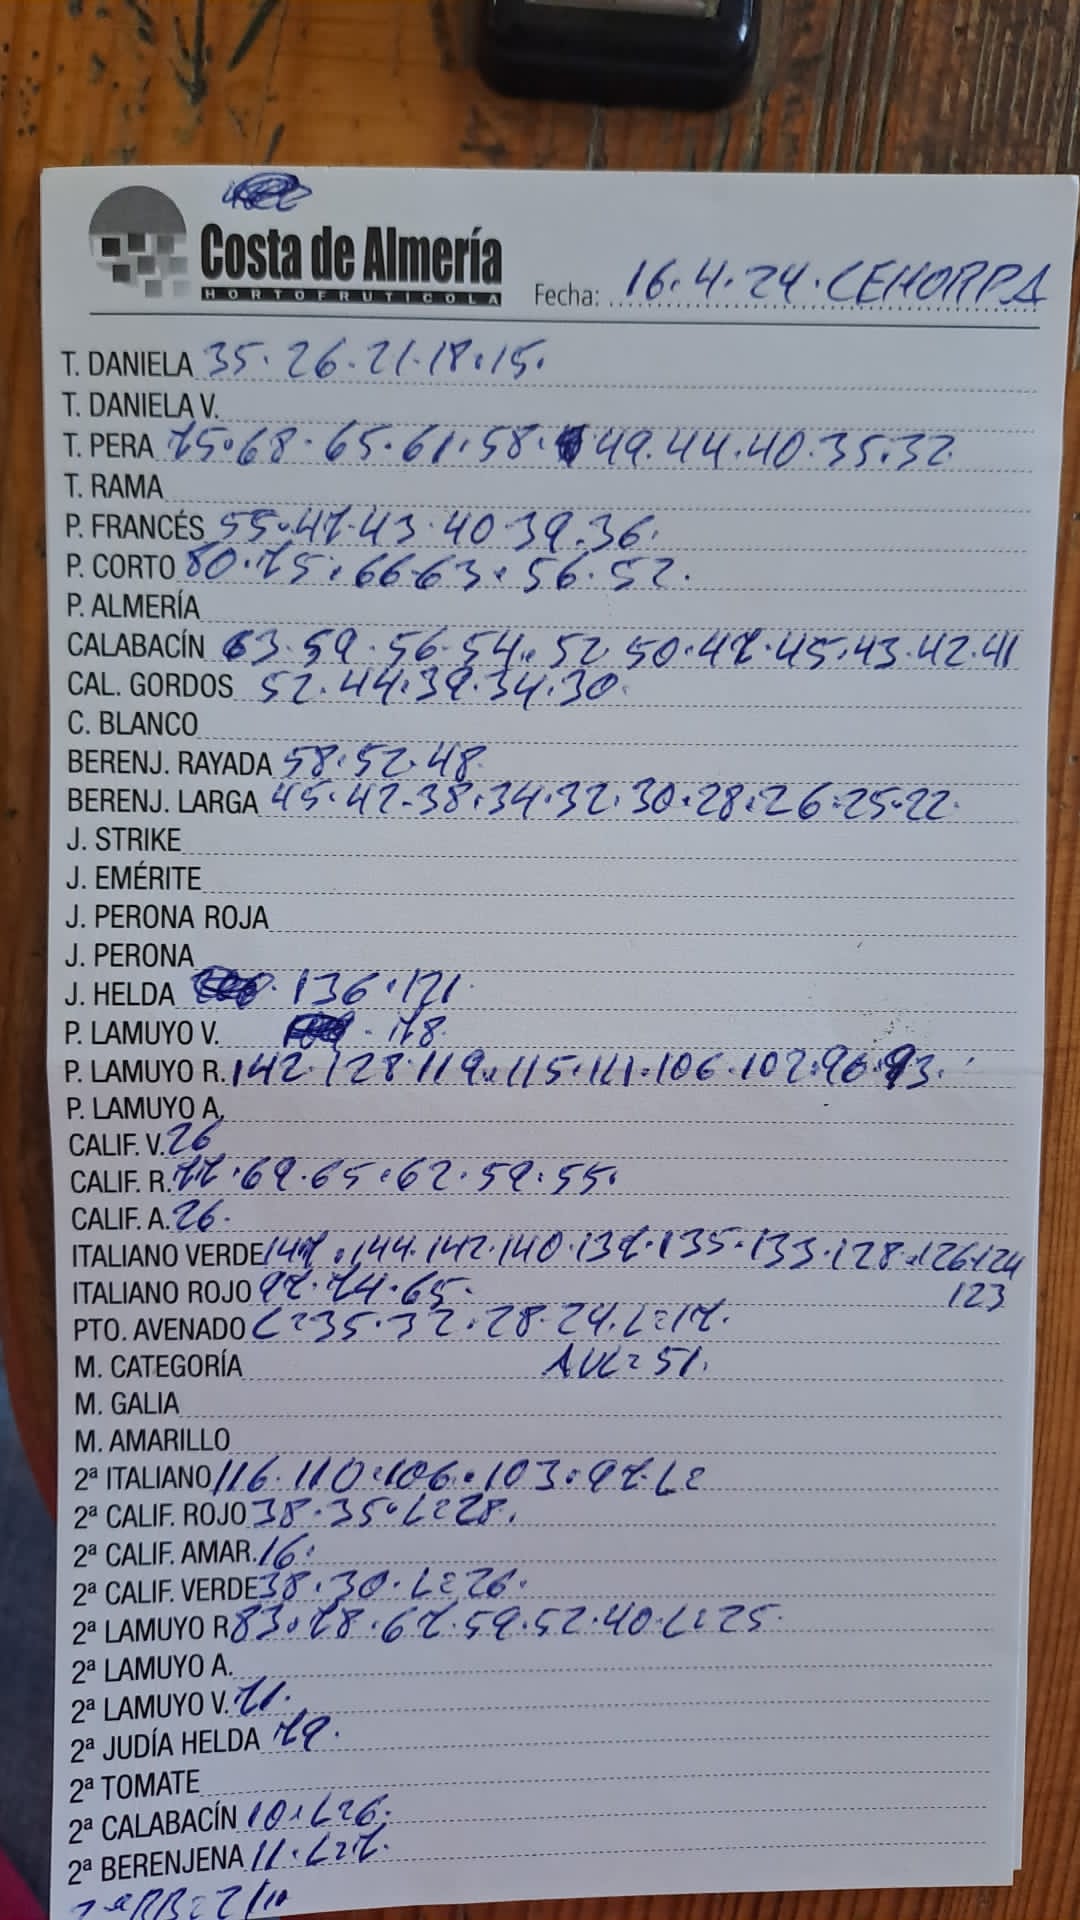 Costa de Almería
HORTOFRUTICOLA
Fecha: 16.4.24. CEHORPA
T. DANIELA 35. 26. 21. 18. 15.
T. DANIELA V.
T. PERA 75. 68. 65. 61. 58. 49. 44. 40. 35. 32.
T. RAMA
P. FRANCÉS 55. 47. 43. 40. 39. 36.
P. CORTO 80. 75. 66. 63. 56. 52.
P. ALMERÍA
CALABACÍN 63. 59. 56. 54. 52. 50. 47. 45. 43. 42. 41
CAL. GORDOS 52. 44. 39. 34. 30.
C. BLANCO
BERENJ. RAYADA 58. 52. 48.
BERENJ. LARGA 45. 42. 38. 34. 32. 30. 28. 26. 25. 22.
J. STRIKE
J. EMÉRITE
J. PERONA ROJA
J. PERONA
J. HELDA 136. 121.
P. LAMUYO V. 78.
P. LAMUYO R. 142. 128. 119. 115. 111. 106. 102. 96. 93.
P. LAMUYO A.
CALIF. V. 26
CALIF. R. 77. 69. 65. 62. 59. 55.
CALIF. A. 26.
ITALIANO VERDE 147. 144. 142. 140. 137. 135. 133. 128. 126. 124
123
ITALIANO ROJO 97. 74. 65.
PTO. AVENADO C=35. 32. 28. 24. L=17.
M. CATEGORÍA AVL=51.
M. GALIA
M. AMARILLO
2ª ITALIANO 116. 110. 106. 103. 97. L=
2ª CALIF. ROJO 38. 35. L=28.
2ª CALIF. AMAR. 16.
2ª CALIF. VERDE 38. 30. L=26.
2ª LAMUYO R 83. 78. 67. 59. 52. 40. L=25.
2ª LAMUYO A.
2ª LAMUYO V. 71.
2ª JUDÍA HELDA 79.
2ª TOMATE
2ª CALABACÍN 10. L=6.
2ª BERENJENA 11. L=7.